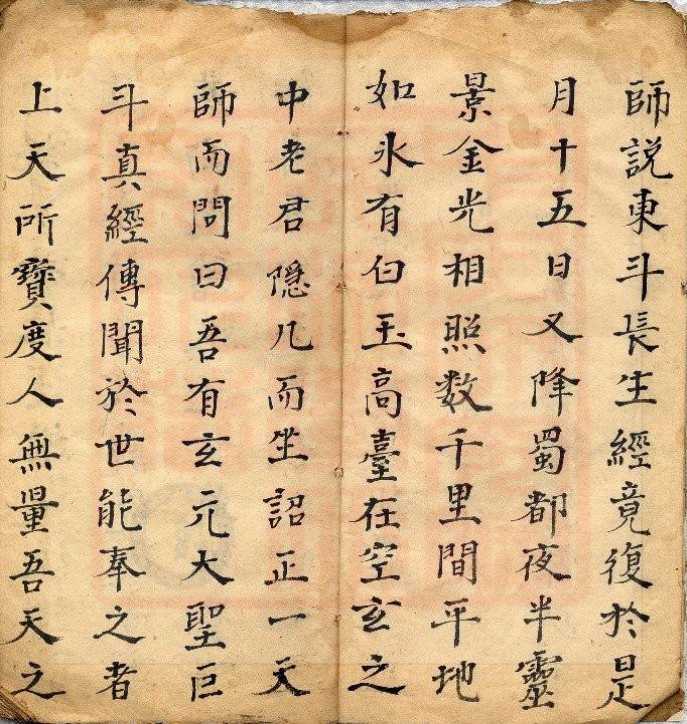 師說東斗長生經竟復於是
月十五日又降蜀都夜半靈
景金光相照数千里間平地
如氷有白玉高臺在空玄之
中老君隠几而坐詔正一天
師而問曰吾有玄元大聖巨
斗真經傳聞於世能奉之者
上天所寶度人無量吾天之